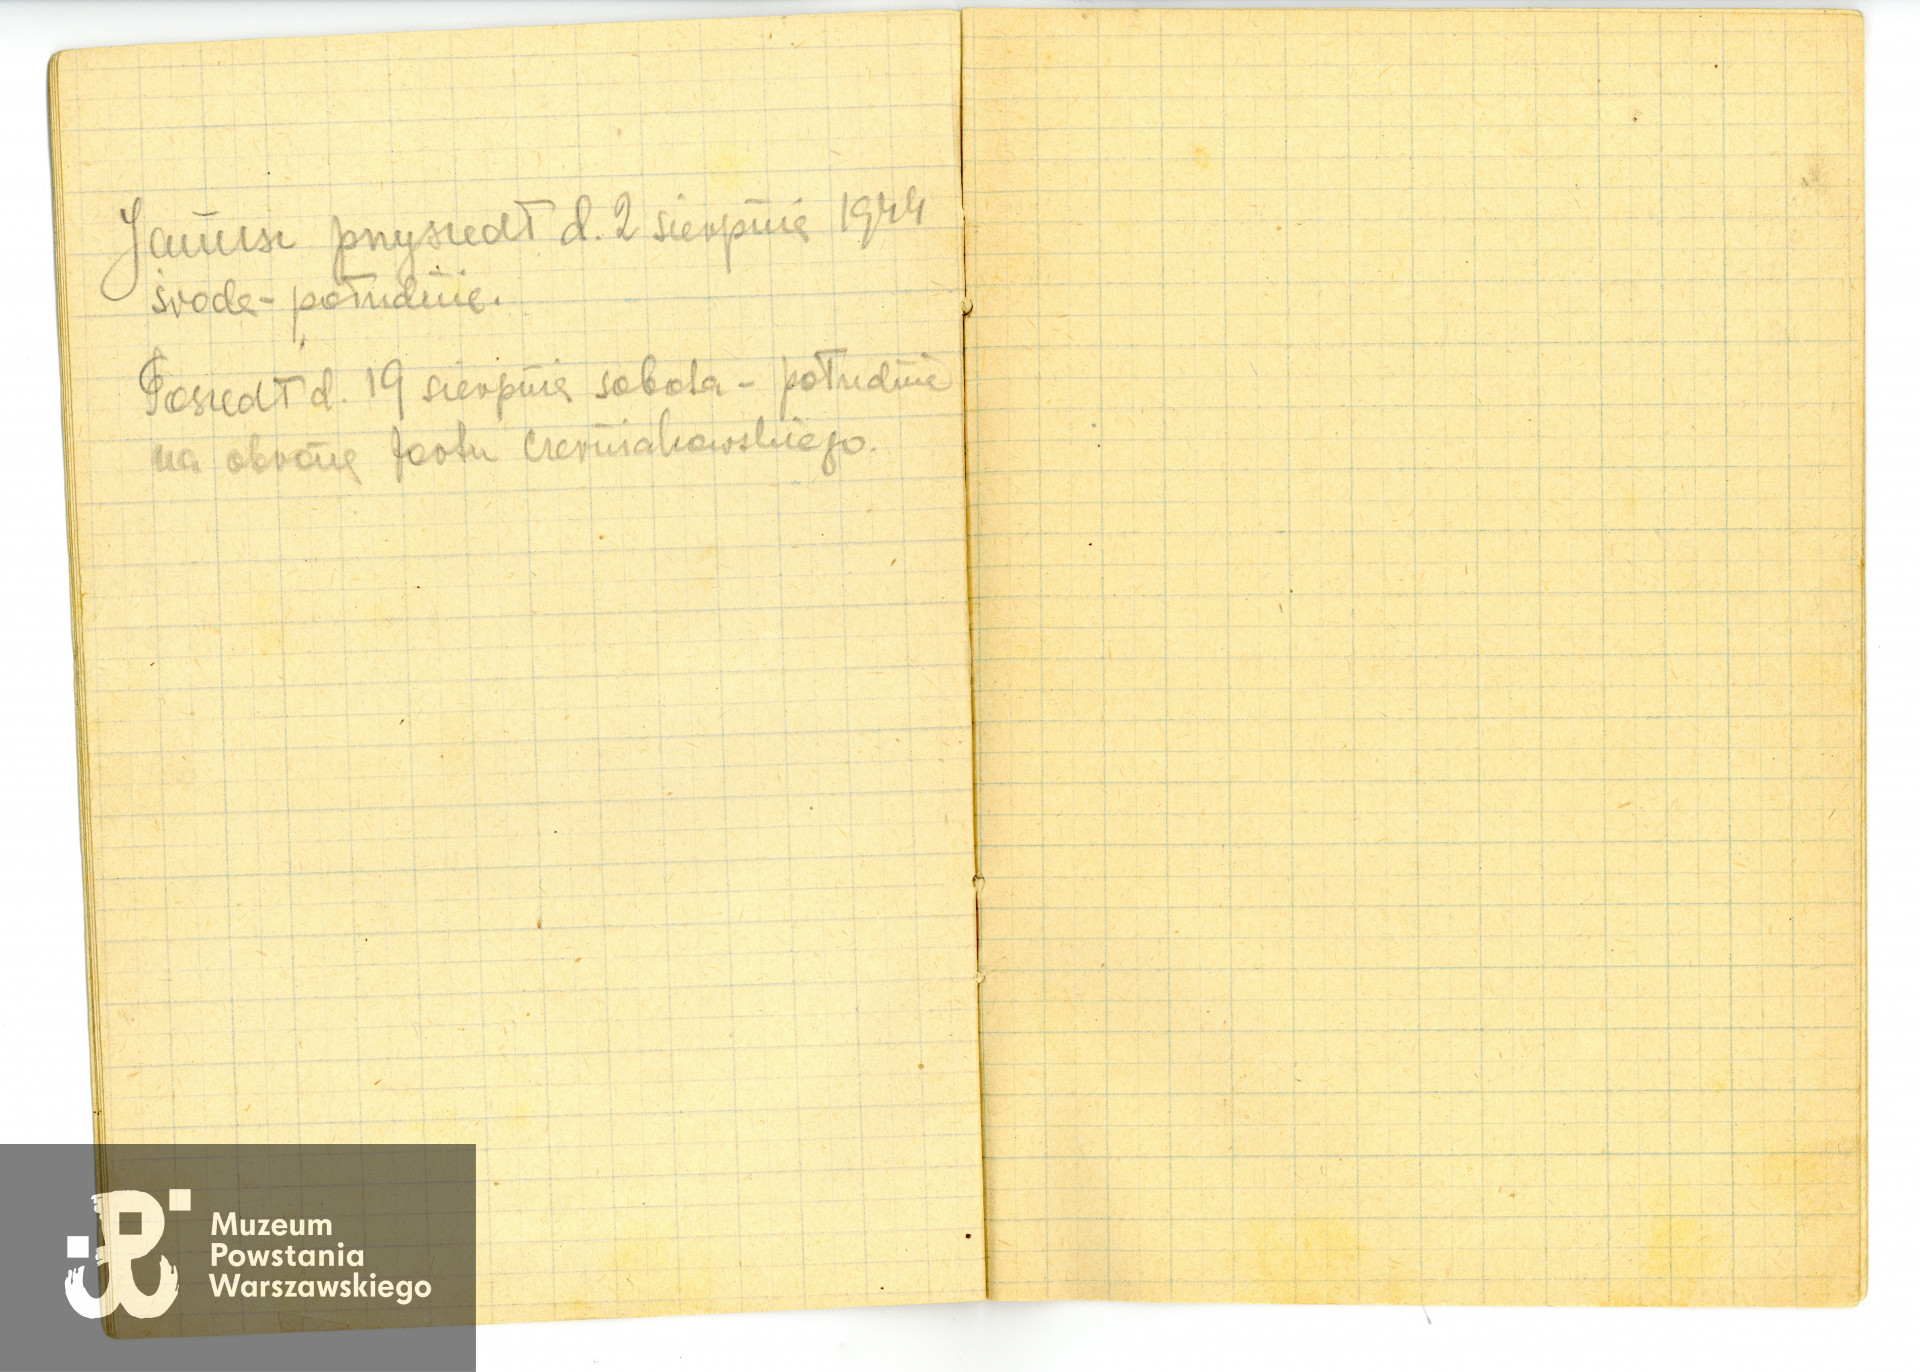 Janusz przyszedł d. 2 sierpnia 1944
środa - południe.
Poszedł d. 19 sierpnia sobota - południe
na obronę fortu Czerniakowskiego.
Muzeum
Powstania
Warszawskiego